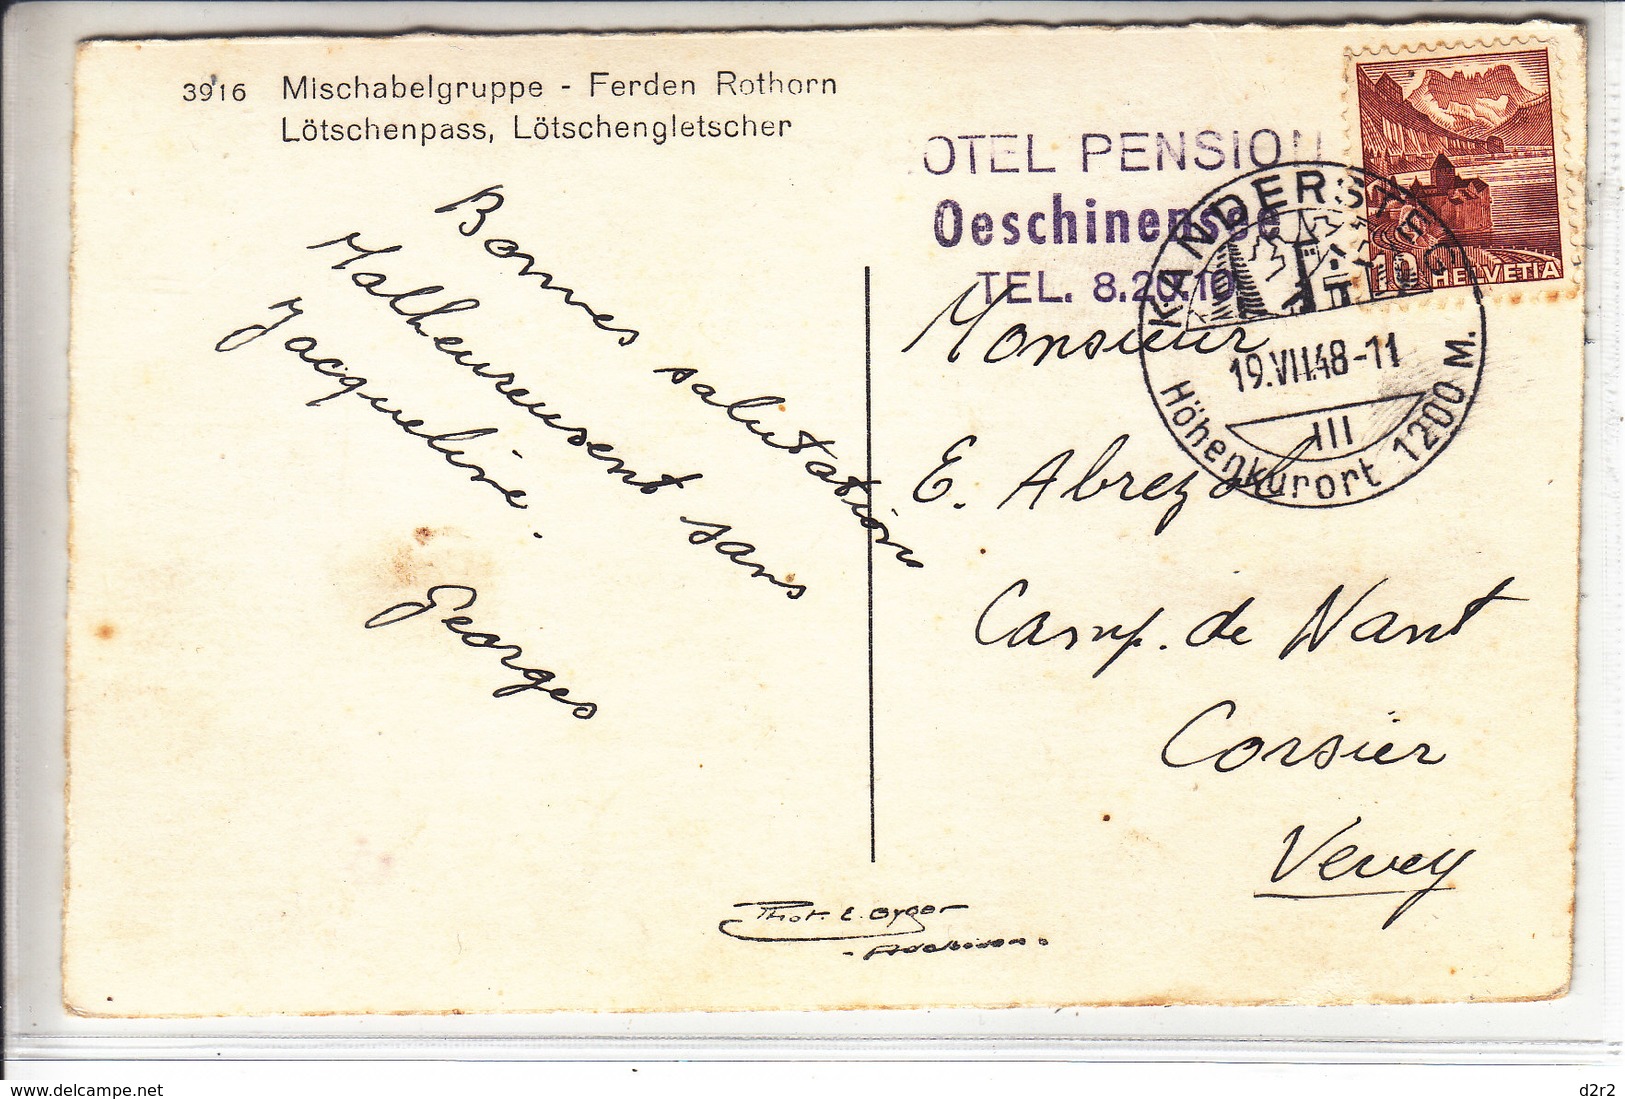 3916 Mischabelgruppe - Ferden Rothorn
Lötschenpass, Lötschengletscher
OTEL PENSION
Oeschinensee
TEL. 8.20.10
KANDERSTEG
19.VII.48-11
III
Höhenkurort 1200 M.
10 HELVETIA
Bonnes salutations
Malheureusent sans
Jacqueline.
Georges
Monsieur
E. Abrezol
Camp. de Nant
Corsier
Vevey
Phot. E. Gyger
- Adelboden.
www.delcampe.net
d2r2